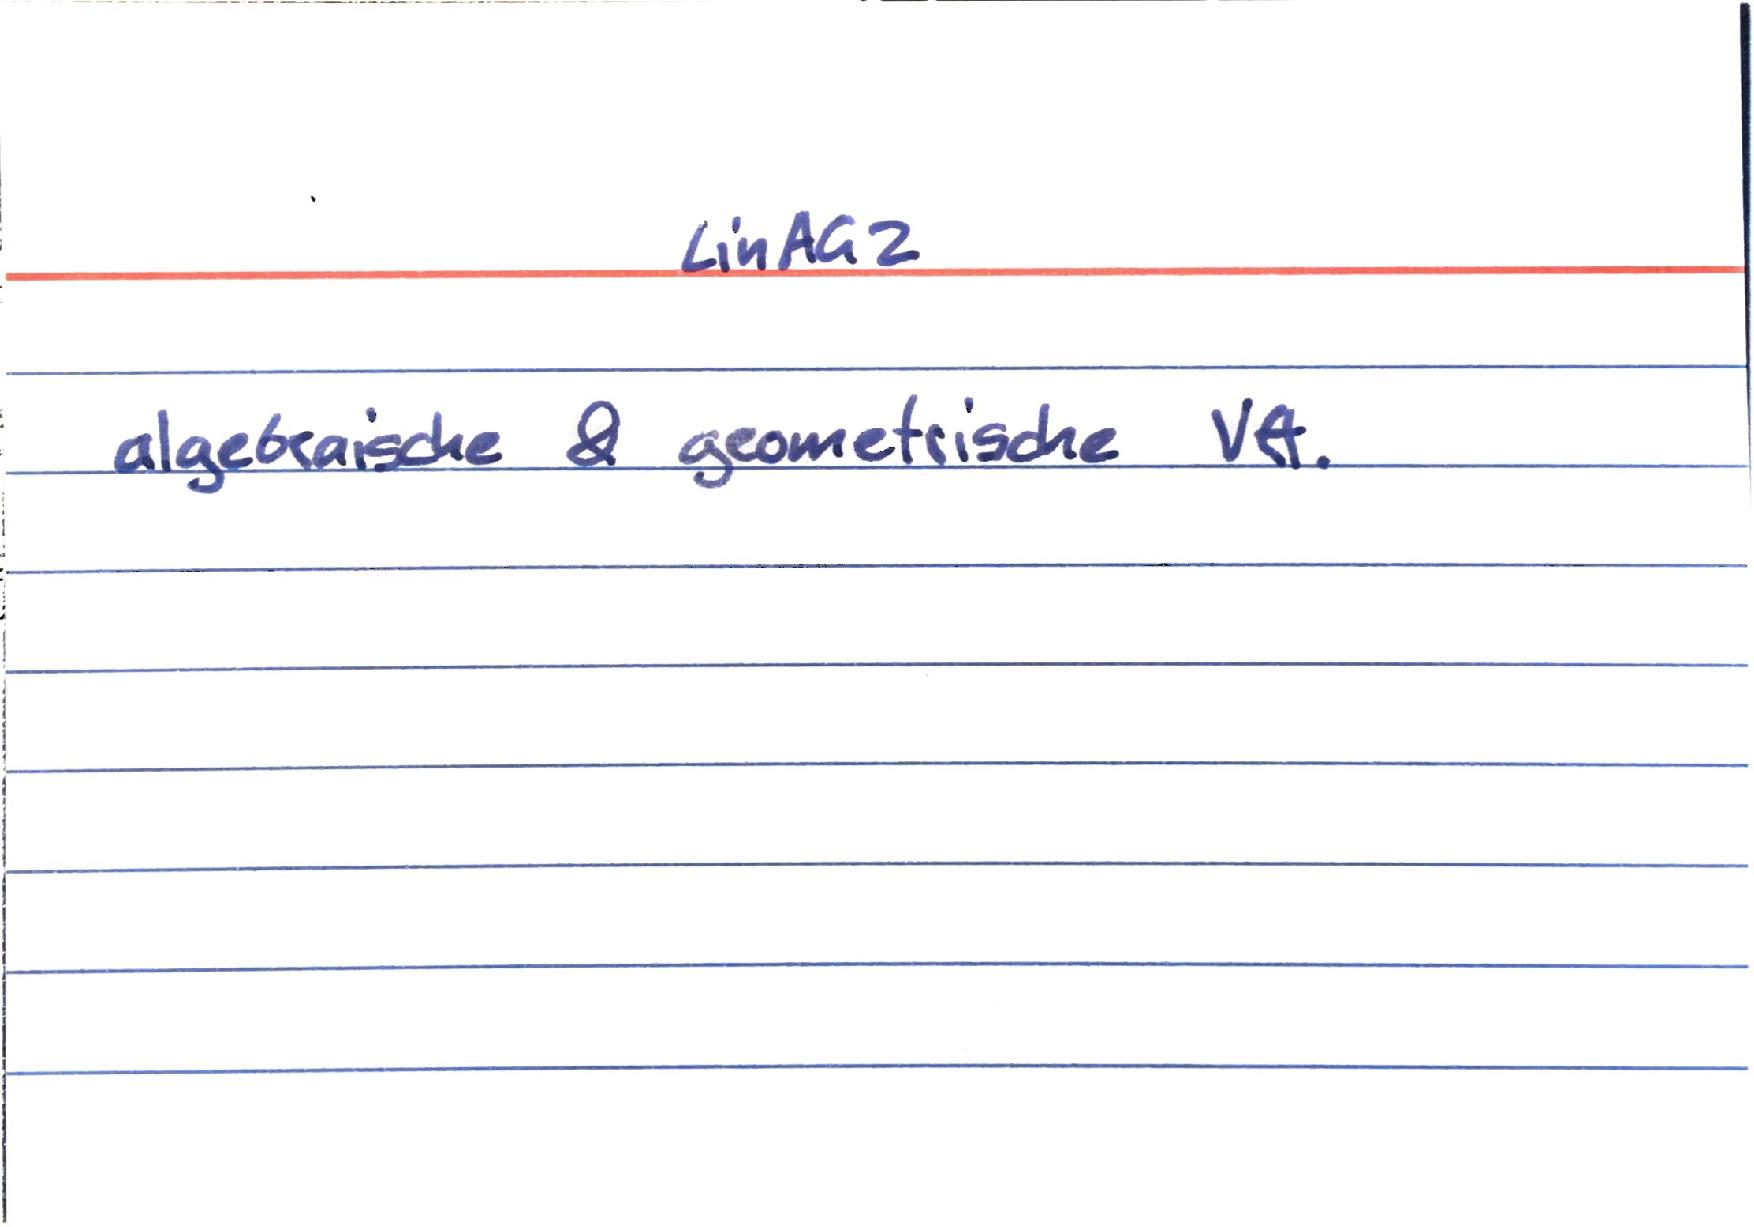 LinAG 2
algebraische & geometrische Vft.